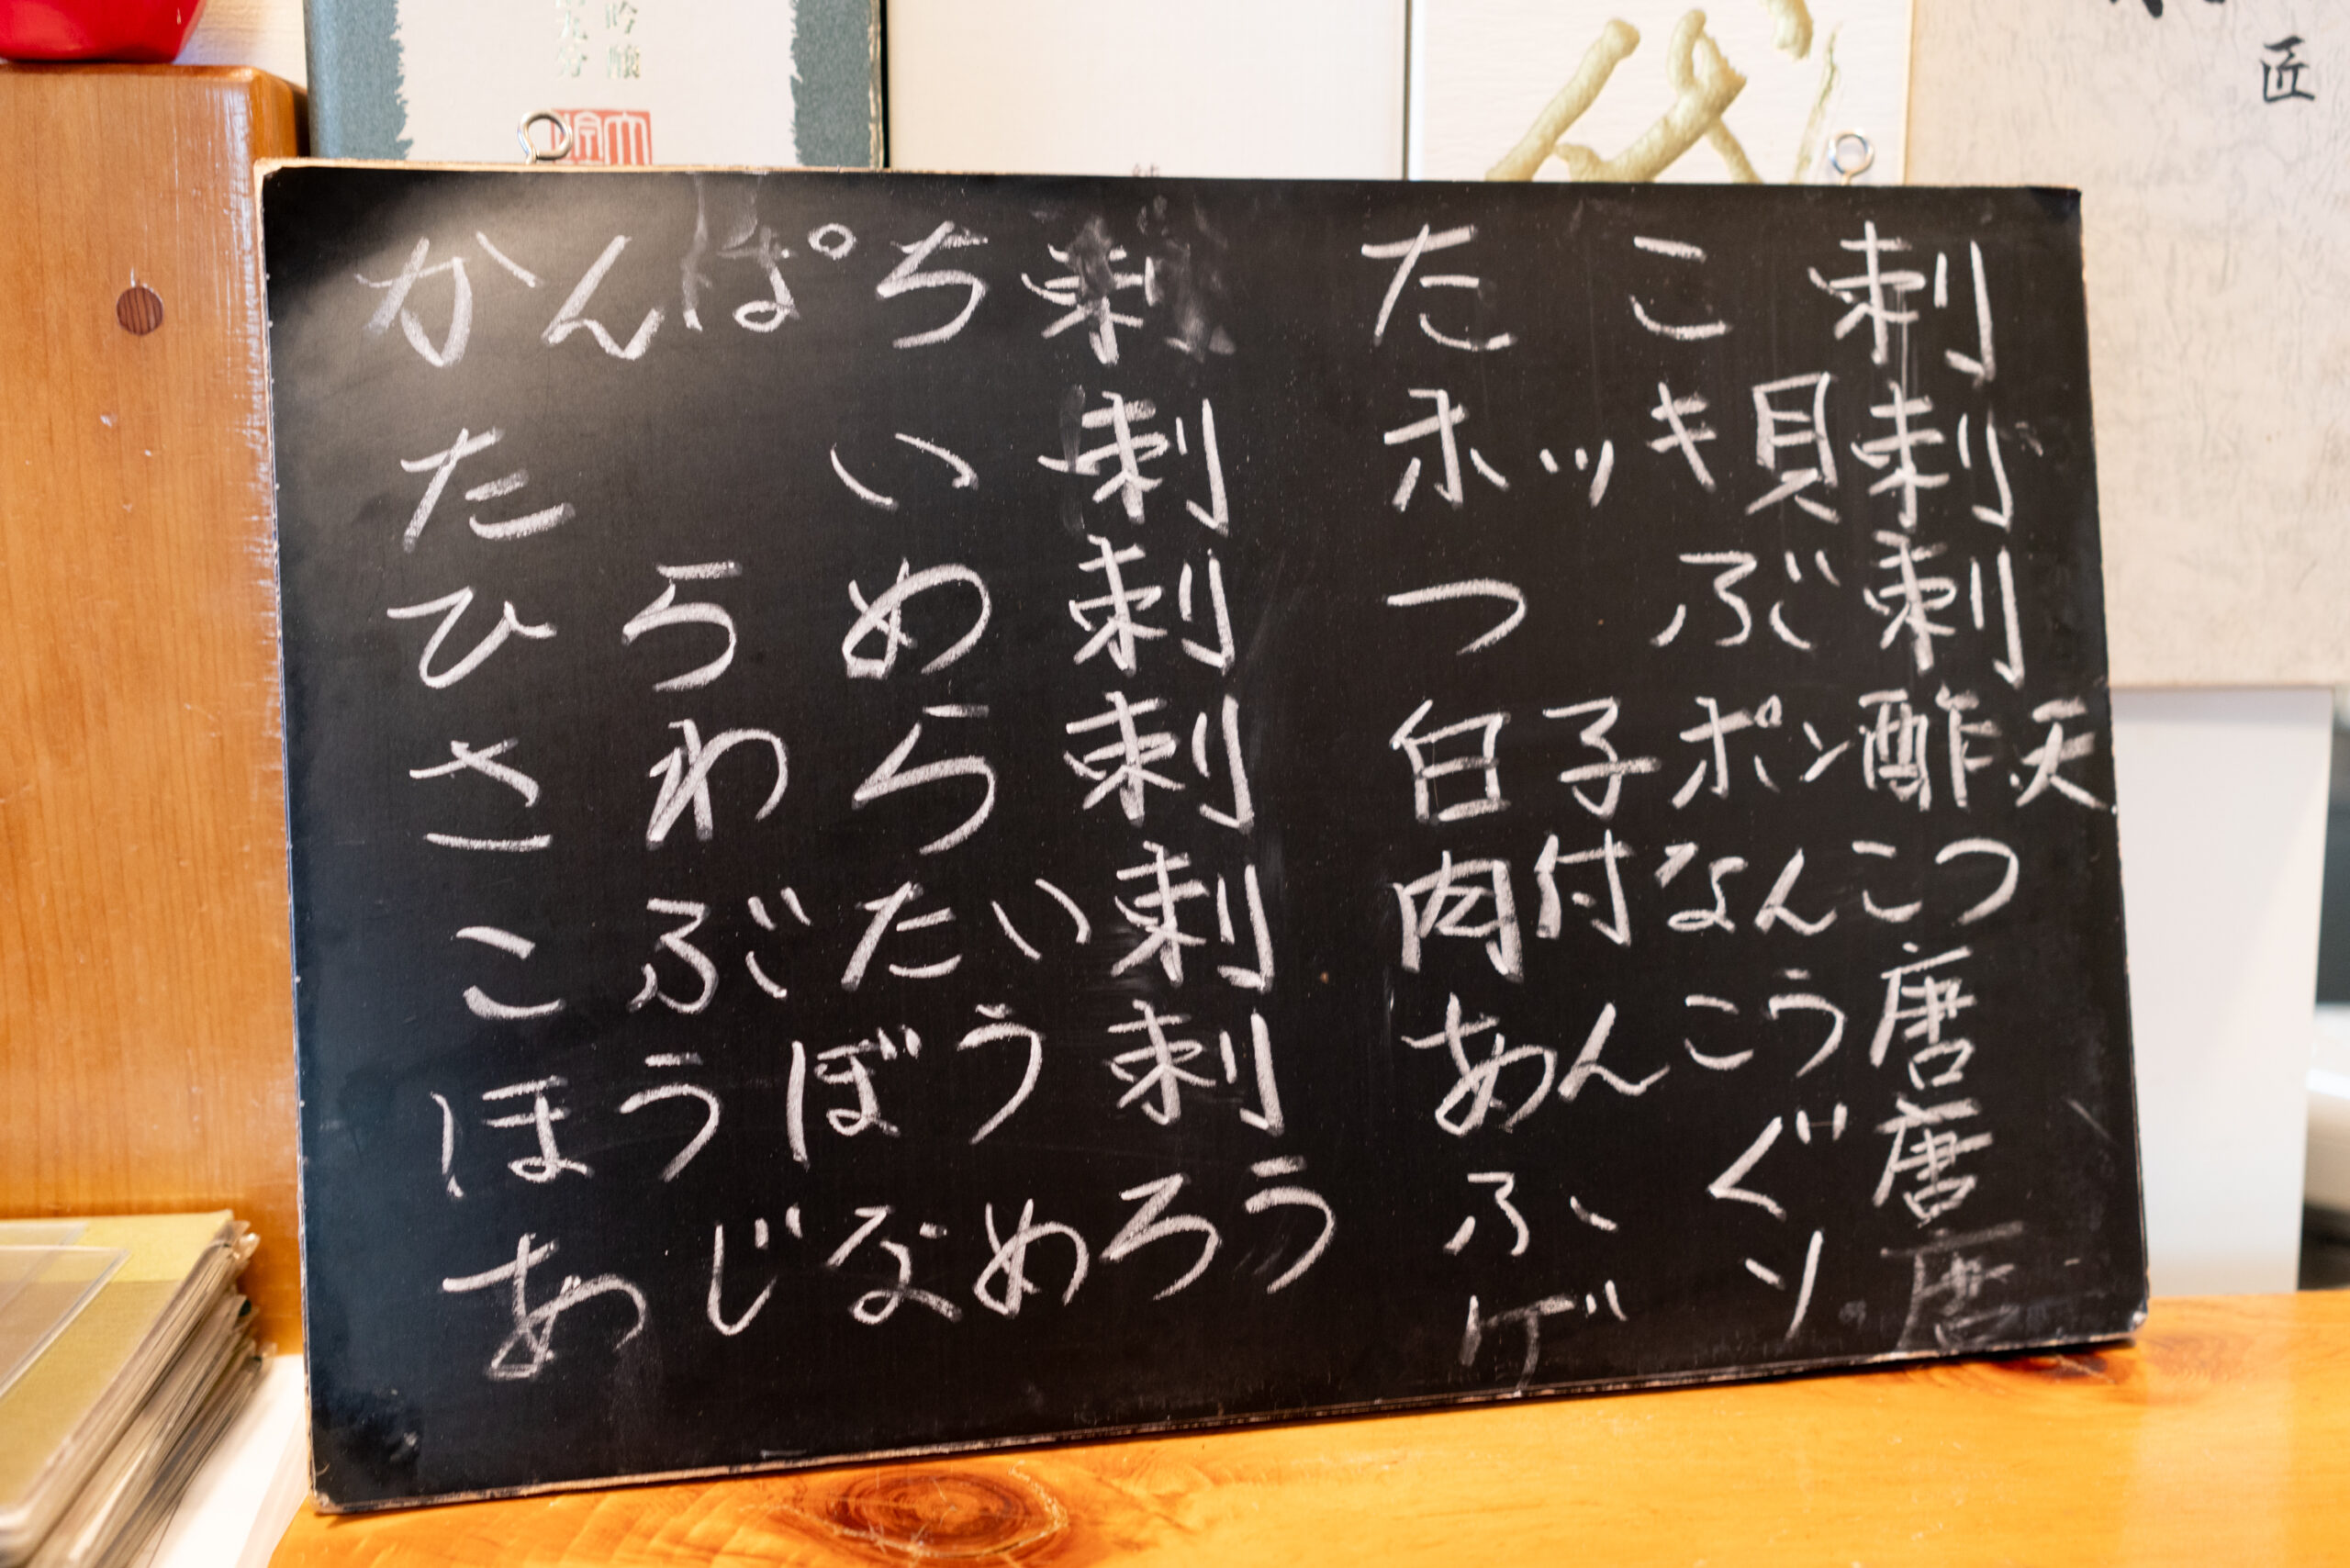 吟醸
匠
かんぱち刺
たい刺
ひらめ刺
さわら刺
こぶたい刺
ほうぼう刺
あじなめろう
たこ刺
ホッキ貝刺
つぶ刺
白子ポン酢.天
肉付なんこつ
あんこう唐
ふぐ唐
ゲソ唐